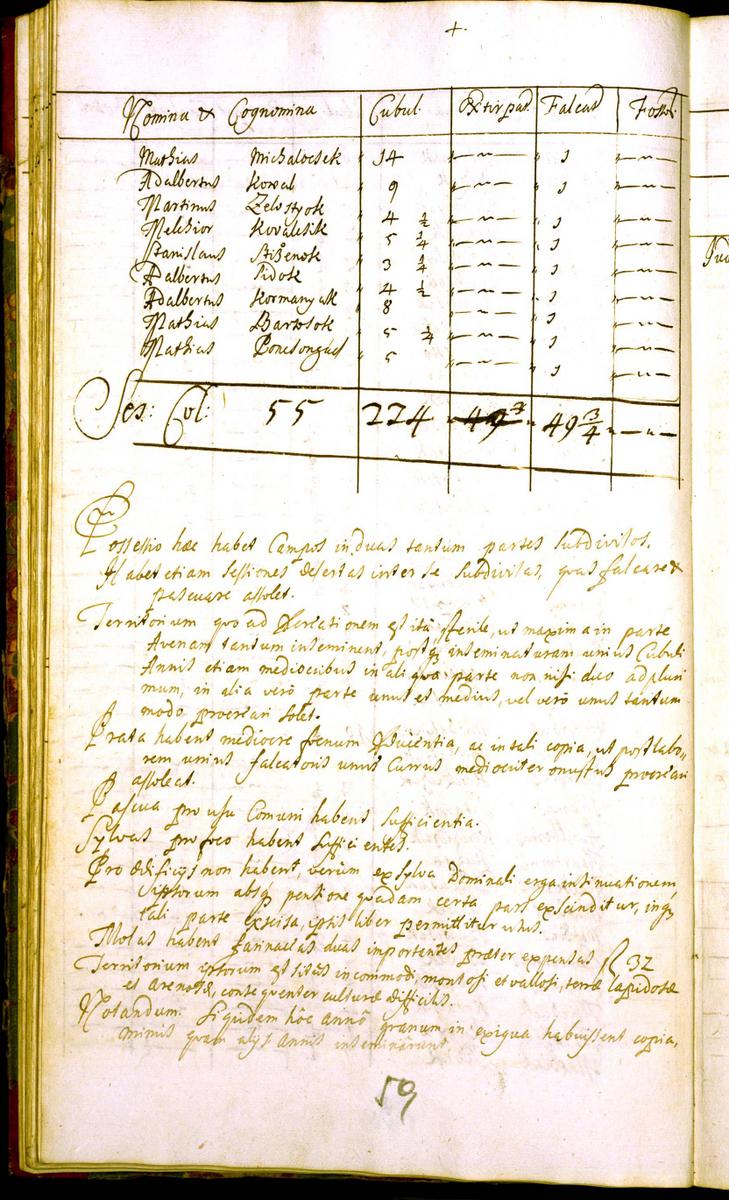 +.
Nomina & Cognomina Cubul. Extirpat. Falcat. Fossor.
Mathias Michalocsek " 14 "—"— " 1 "—"—
Adalbertus Koval " 9 "—"— " 1 "—"—
Martinus " 4 ½ "—"— " 1 "—"—
Melchior Kovalcsik " 5 ¼ "—"— " 1 "—"—
Stanislaus " 3 ¼ "—"— " 1 "—"—
Adalbertus Sidok " 4 ½ "—"— " 1 "—"—
Adalbertus Kormanyak " 8 "—"— " 1 "—"—
Mathias Bartosok " 5 ¼ "—"— " 1 "—"—
Mathias " 5 "—"— " 1 "—"—
Ses: Col: 55 224 " 49¾ " 49¾ "—"—
Possessio haec habet Campos in duas tantum partes subdivisos.
Habet etiam Sessiones desertas inter se subdivisas, quas falcare &
pascuare assolet.
Territorium quo ad procreationem est ita sterile, ut maxima in parte
Avenam tantum inseminent, postq inseminaturam unius Cubuli
Annis etiam mediocribus in aliqua parte non nisi duo ad pluri
mum, in alia verò parte unus et medius, vel verò unus tantum
modo procreari solet.
Prata habent mediocre foenum producentia, ac in tali copia, ut post labo„
rem unius falcatoris unus Currus mediocriter onustus procreari
assoleat.
Pascua pro usu Comuni habent sufficientia.
Sylvas pro foco habent sufficientes.
Pro aedificijs non habent, verùm ex sylva Dominali erga insinuationem
Ipsorum absq pensione quadam certa pars exscinditur, inq
tali parte excisa, ipsis liber permittitur usus.
Molas habent farinaceas duas importantes praeter expensas f 32
Territorium ipsorum est situs incommodi, montosi et vallosi, terrae lapidosae
et arenosae, consequenter culturae difficilis.
Notandum. Siquidem hôc annô granum in exigua habuissent copia,
minus quam alijs annis inseminârunt.
59